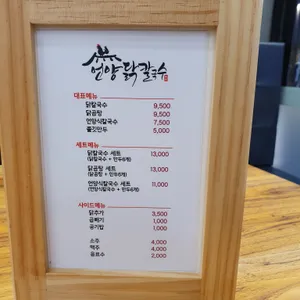 언양닭칼국수
대표메뉴
닭칼국수 9,500
닭곰탕 9,500
언양식칼국수 7,500
쫄깃만두 5,000
세트메뉴
닭칼국수 세트 13,000
(닭칼국수 + 만두6개)
닭곰탕 세트 13,000
(닭곰탕 + 만두6개)
언양식칼국수 세트 11,000
(언양식칼국수 + 만두6개)
사이드메뉴
닭추가 3,500
곱빼기 1,000
공기밥 1,000
소주 4,000
맥주 4,000
음료수 2,000